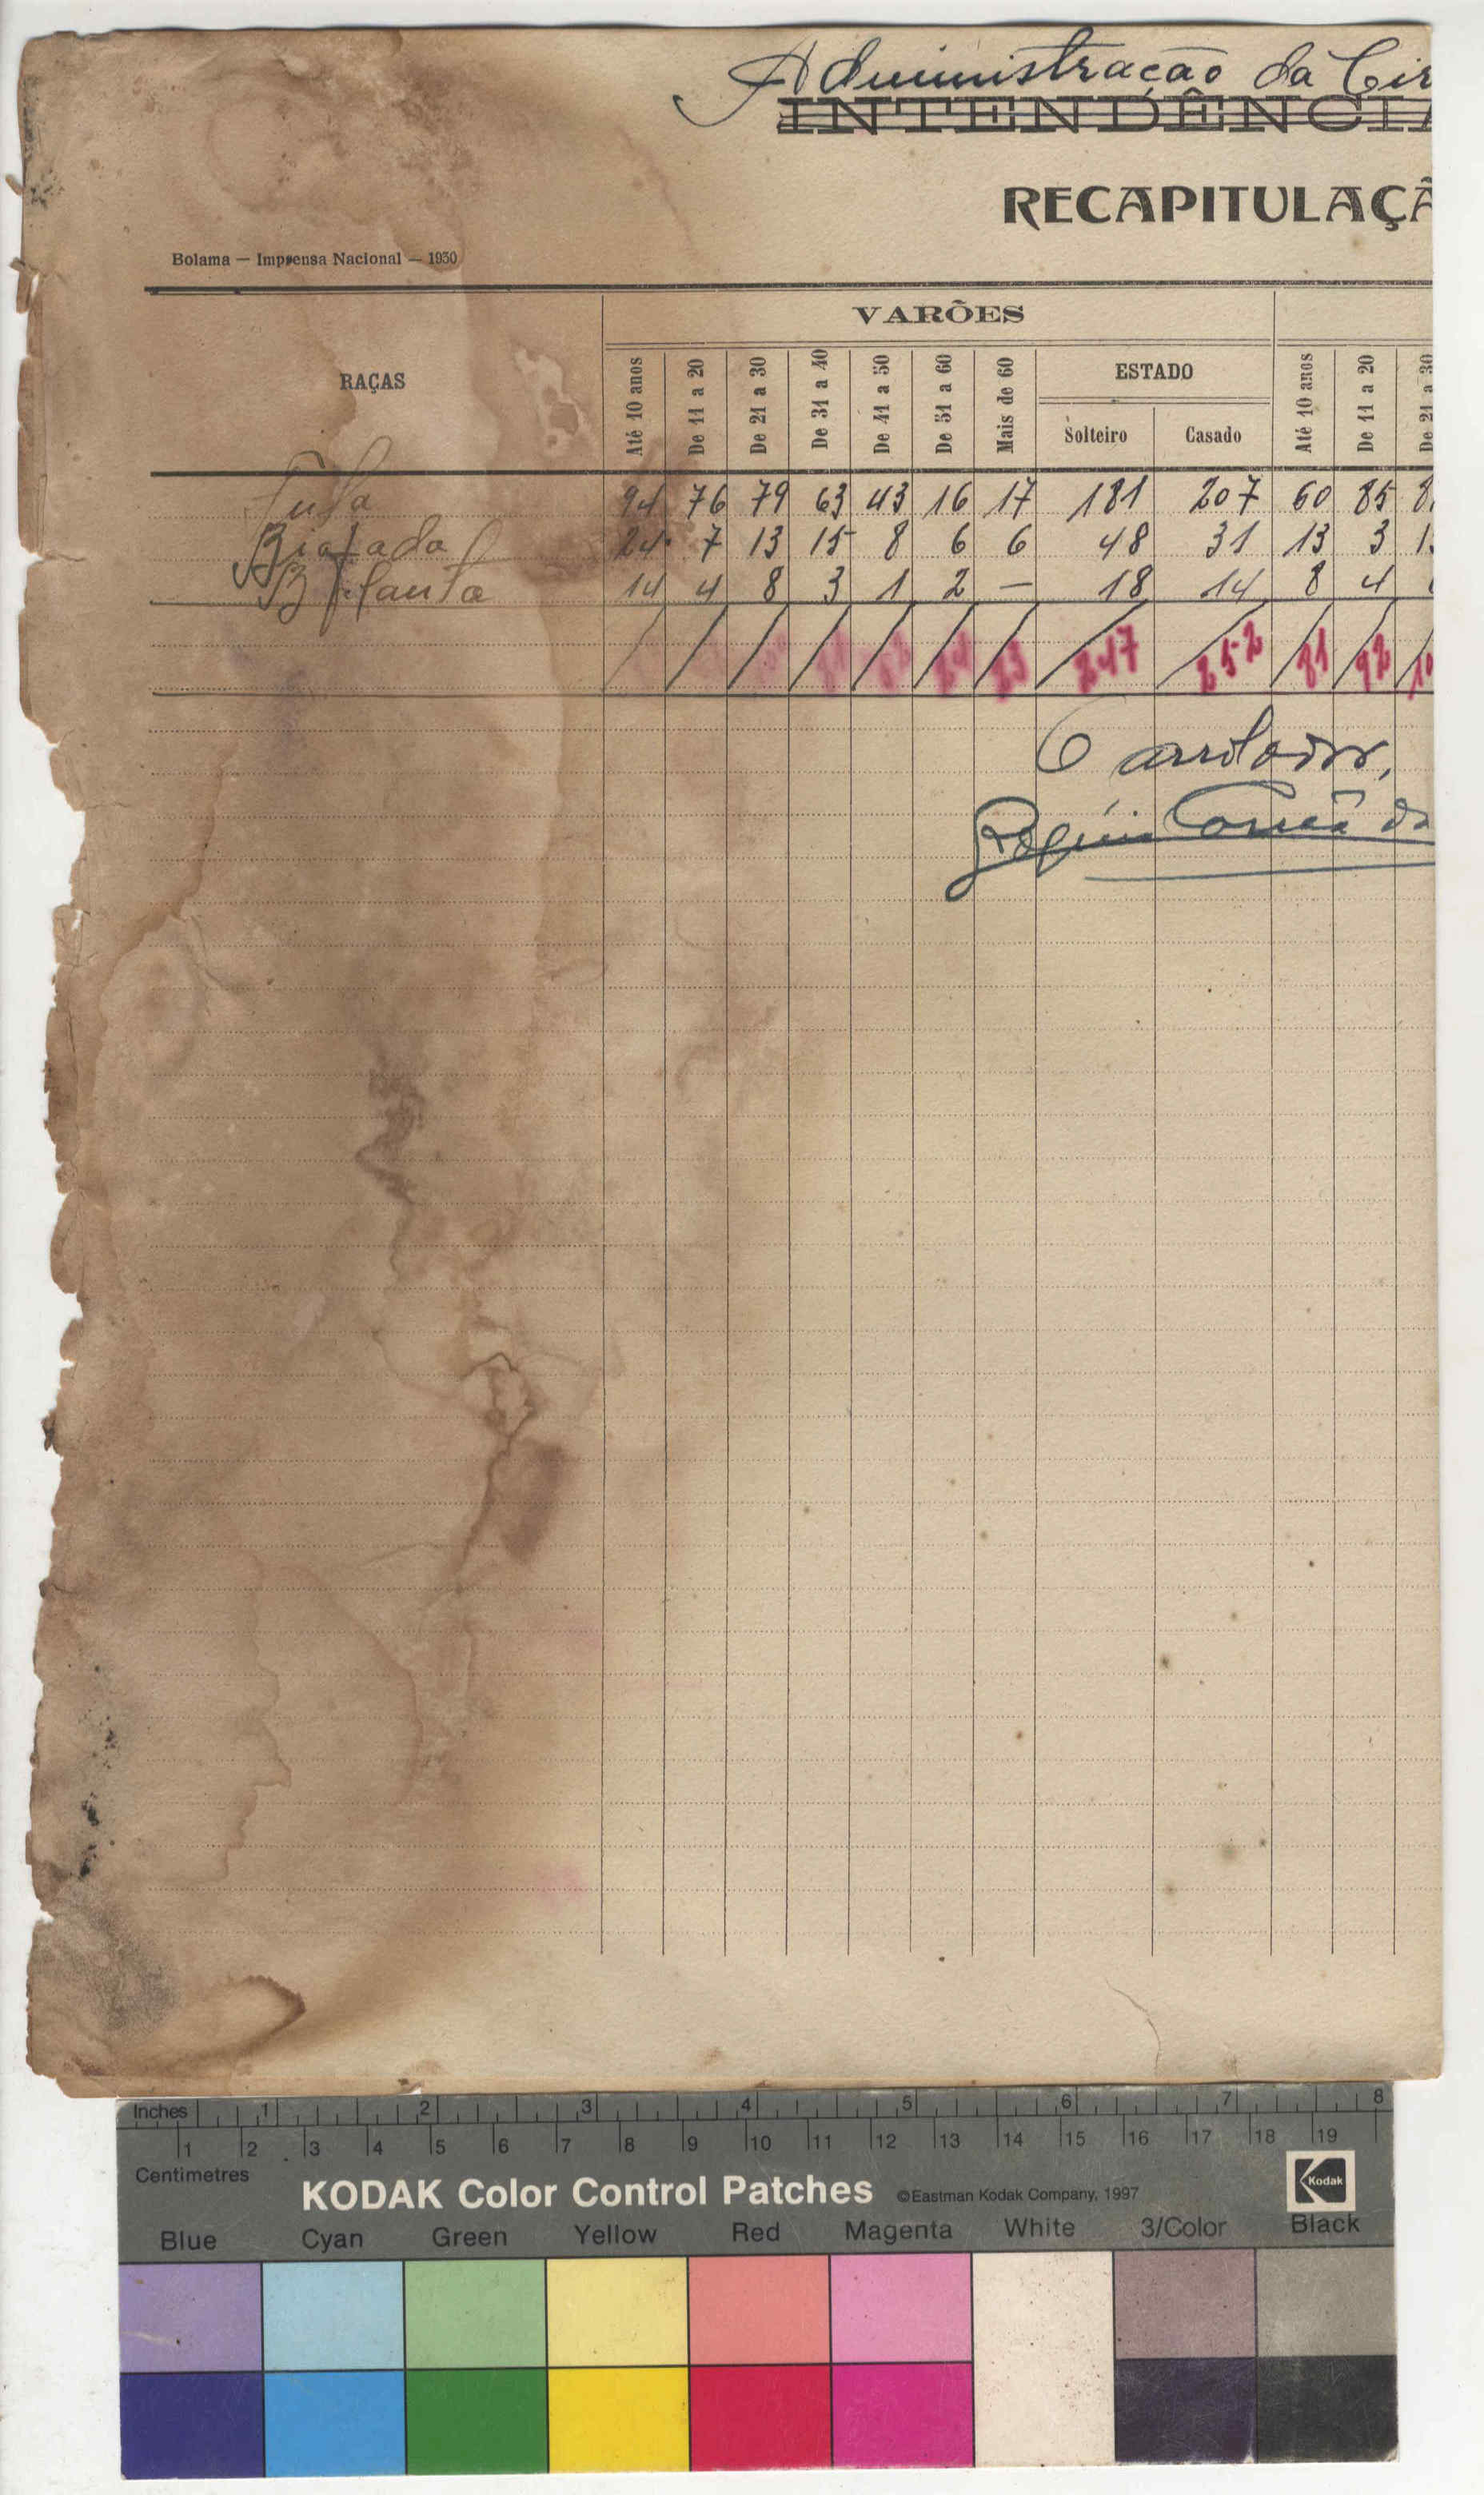 Administração da Cir
INTENDÊNCIA
RECAPITULAÇÃ
Bolama — Imprensa Nacional — 1930
RAÇAS
VARÕES
Até 10 anos
De 11 a 20
De 21 a 30
De 31 a 40
De 41 a 50
De 51 a 60
Mais de 60
ESTADO
Solteiro
Casado
Até 10 anos
De 11 a 20
De 21 a 30
Fula 94 76 79 63 43 16 17 181 207 60 85 8
Biafada 24 7 13 15 8 6 6 48 31 13 3 1
14 4 8 3 1 2 — 18 14 8 4
23 247 252 81 92 10
O arrolador,
Correia da
Inches 1 2 3 4 5 6 7 8
1 2 3 4 5 6 7 8 9 10 11 12 13 14 15 16 17 18 19
Centimetres
KODAK Color Control Patches ©Eastman Kodak Company, 1997 Kodak
Blue Cyan Green Yellow Red Magenta White 3/Color Black